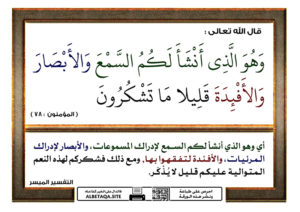 قال الله تعالى :
وَهُوَ الَّذِي أَنْشَأَ لَكُمُ السَّمْعَ وَالْأَبْصَارَ
وَالْأَفْئِدَةَ قَلِيلًا مَا تَشْكُرُونَ
( المؤمنون : ٧٨ )
أي وهو الذي أنشأ لكم السمع لإدراك المسموعات، والأبصار لإدراك
المرئيات، والأفئدة لتفقهوا بها، ومع ذلك فشكركم لهذه النعم
المتوالية عليكم قليل لا يُذْكَر.
التفسير الميسر
ALBETAQA.SITE